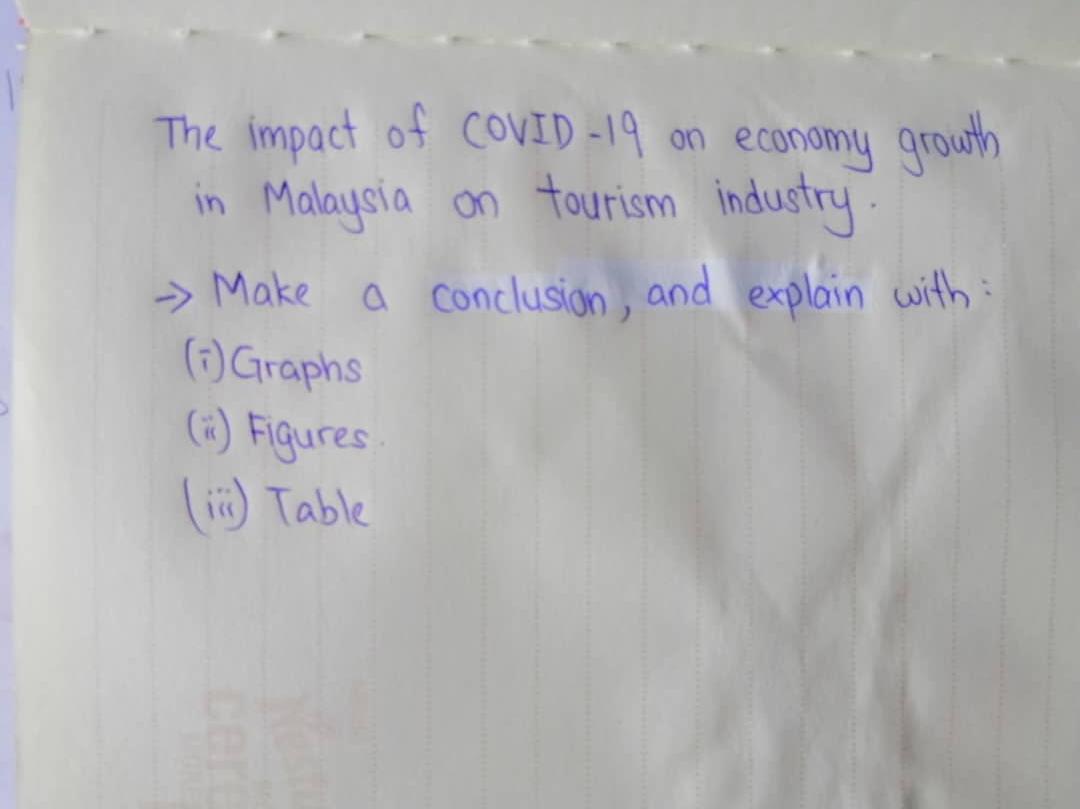 The impact of COVID-19 on economy growth
in Malaysia on tourism industry.
-> Make a conclusion, and explain with:
(i) Graphs
(ii) Figures.
(iii) Table